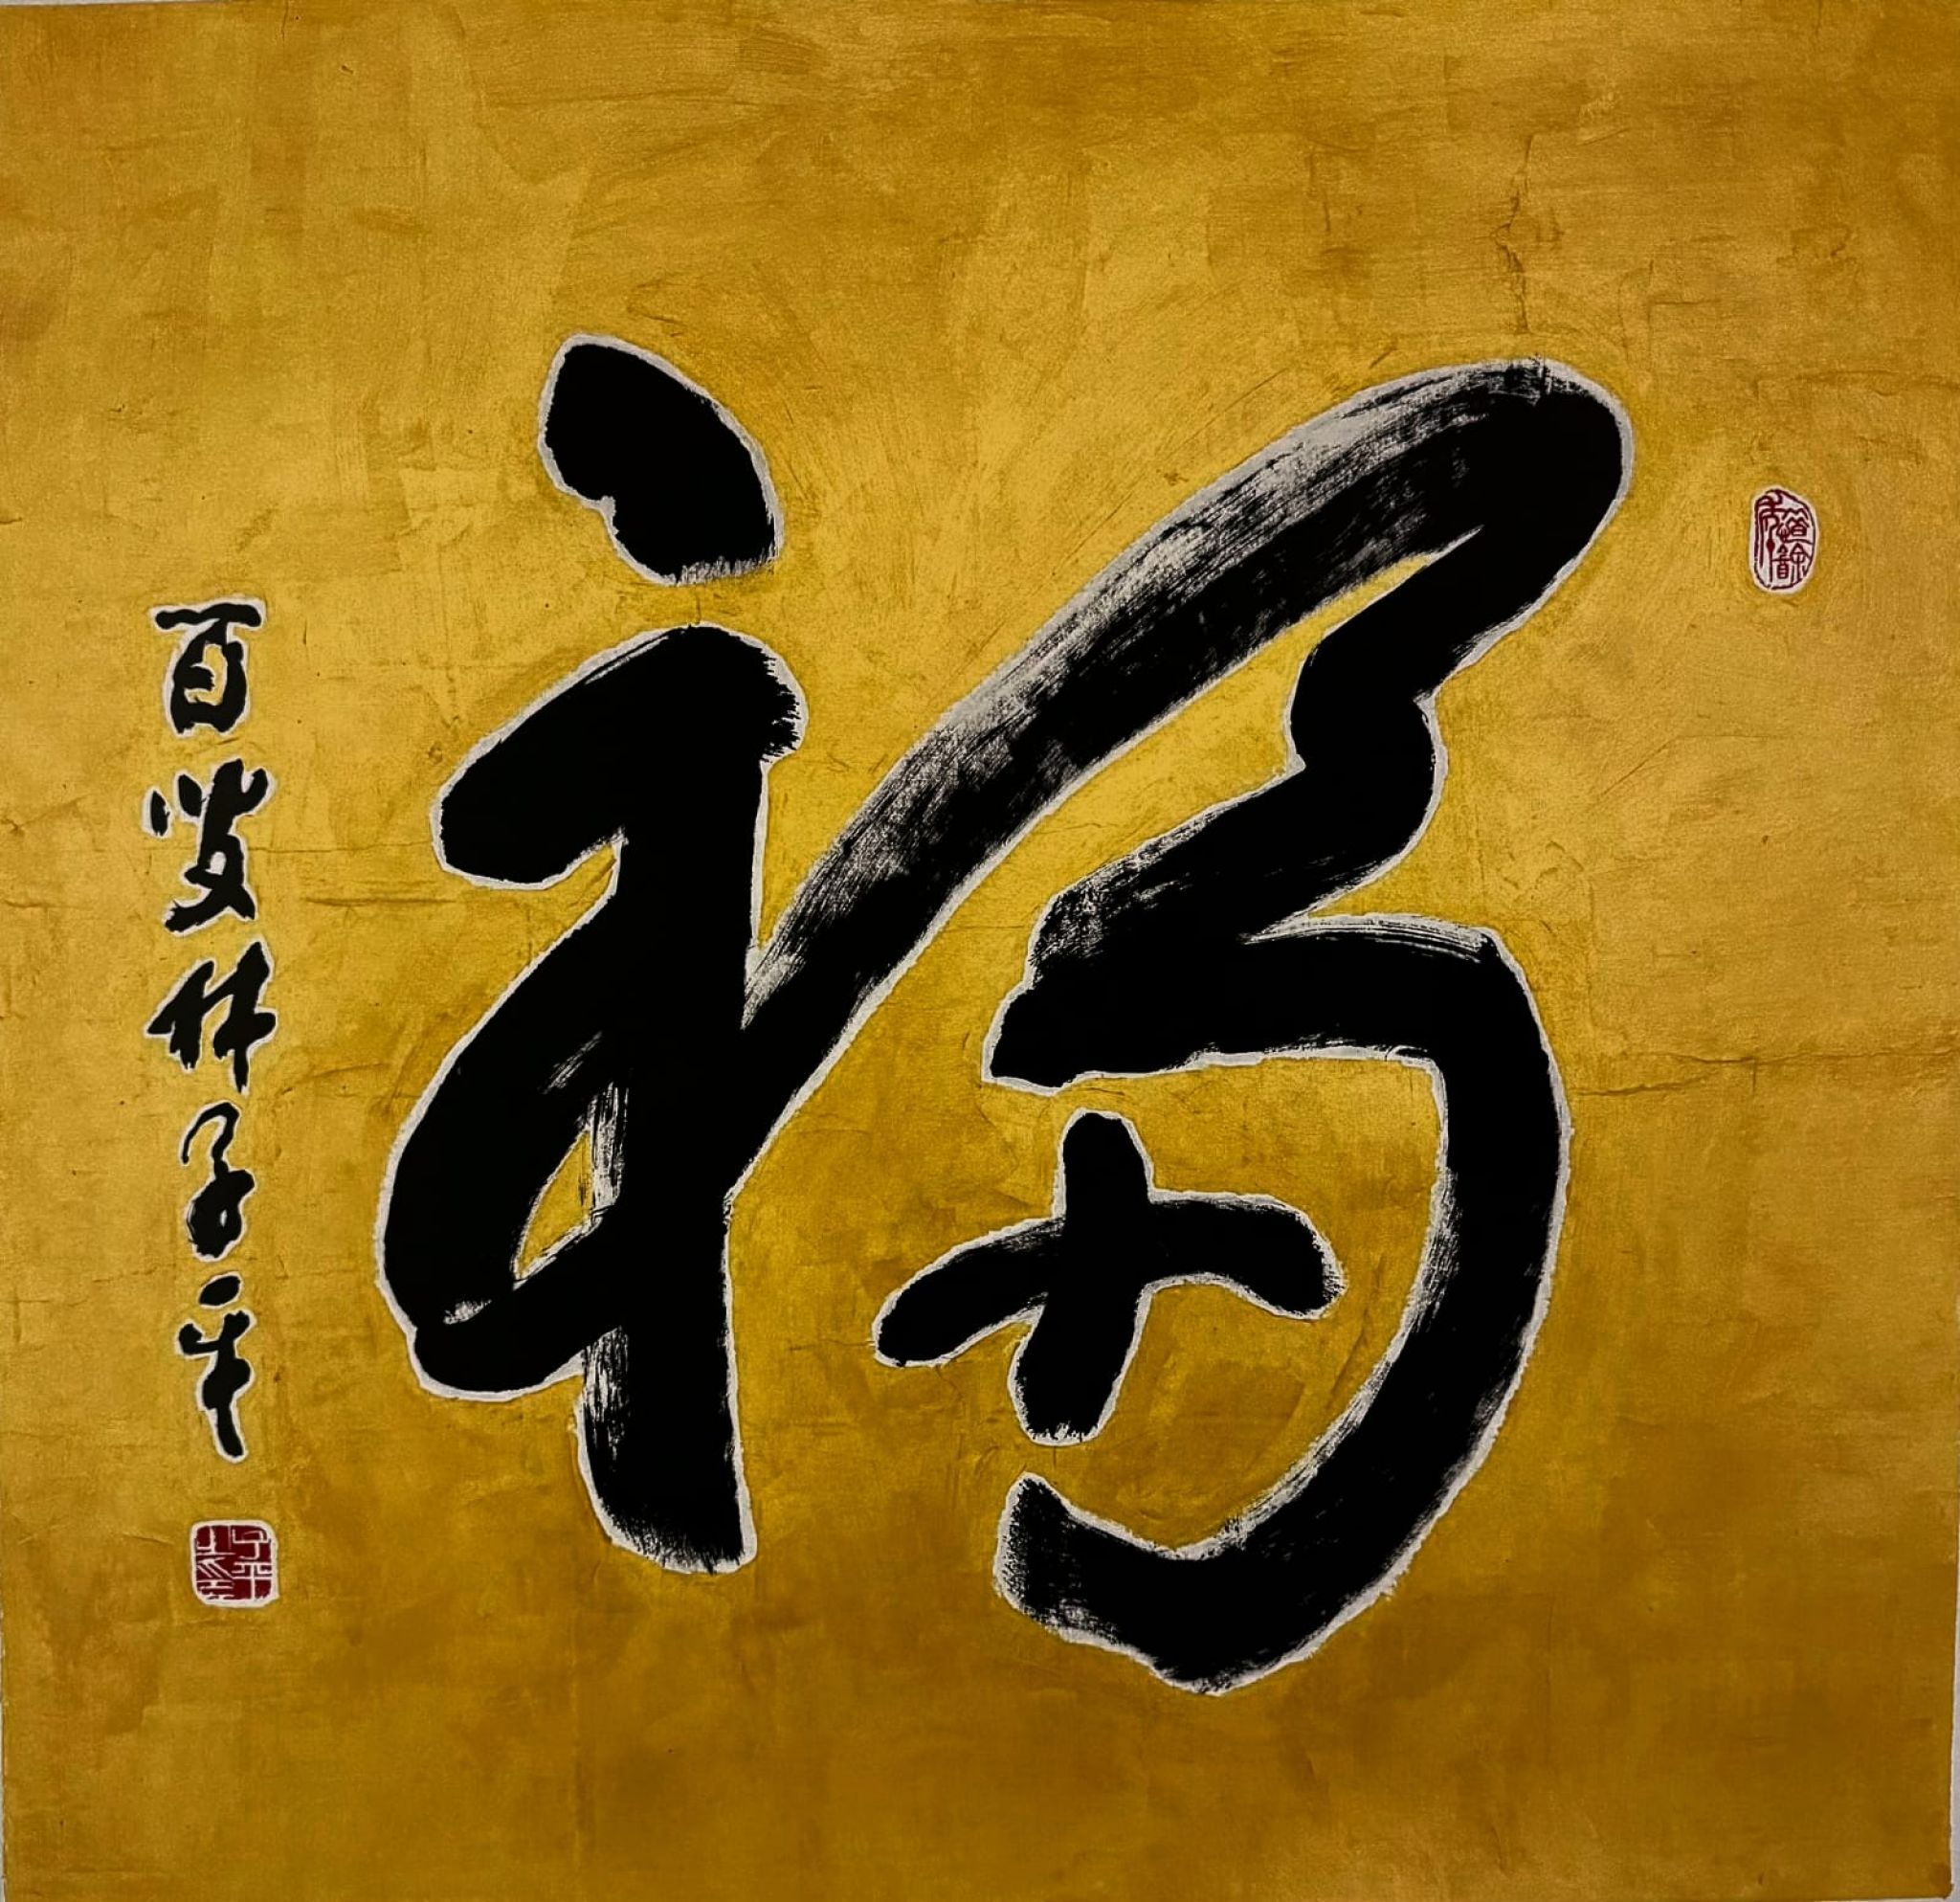 福
百叟林子平